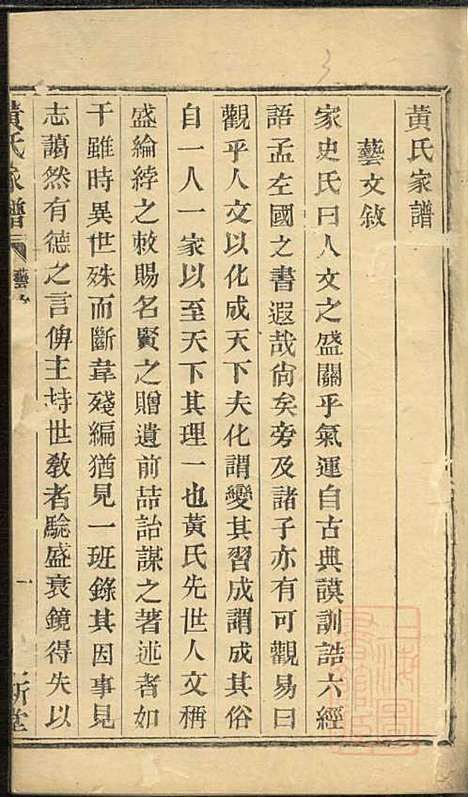 黃氏家譜
藝文敘
家史氏曰人文之盛關乎氣運自古典謨訓誥六經
語孟左國之書遐哉尙矣旁及諸子亦有可觀易曰
觀乎人文以化成天下夫化謂變其習成謂成其俗
自一人一家以至天下其理一也黃氏先世人文稱
盛綸綍之敕賜名賢之贈遺前喆詒謀之著述者如
干雖時異世殊而斷韋殘編猶見一班錄其因事見
志藹然有德之言俾主持世敎者驗盛衰鏡得失以
黃氏家譜
藝
一
堂
3